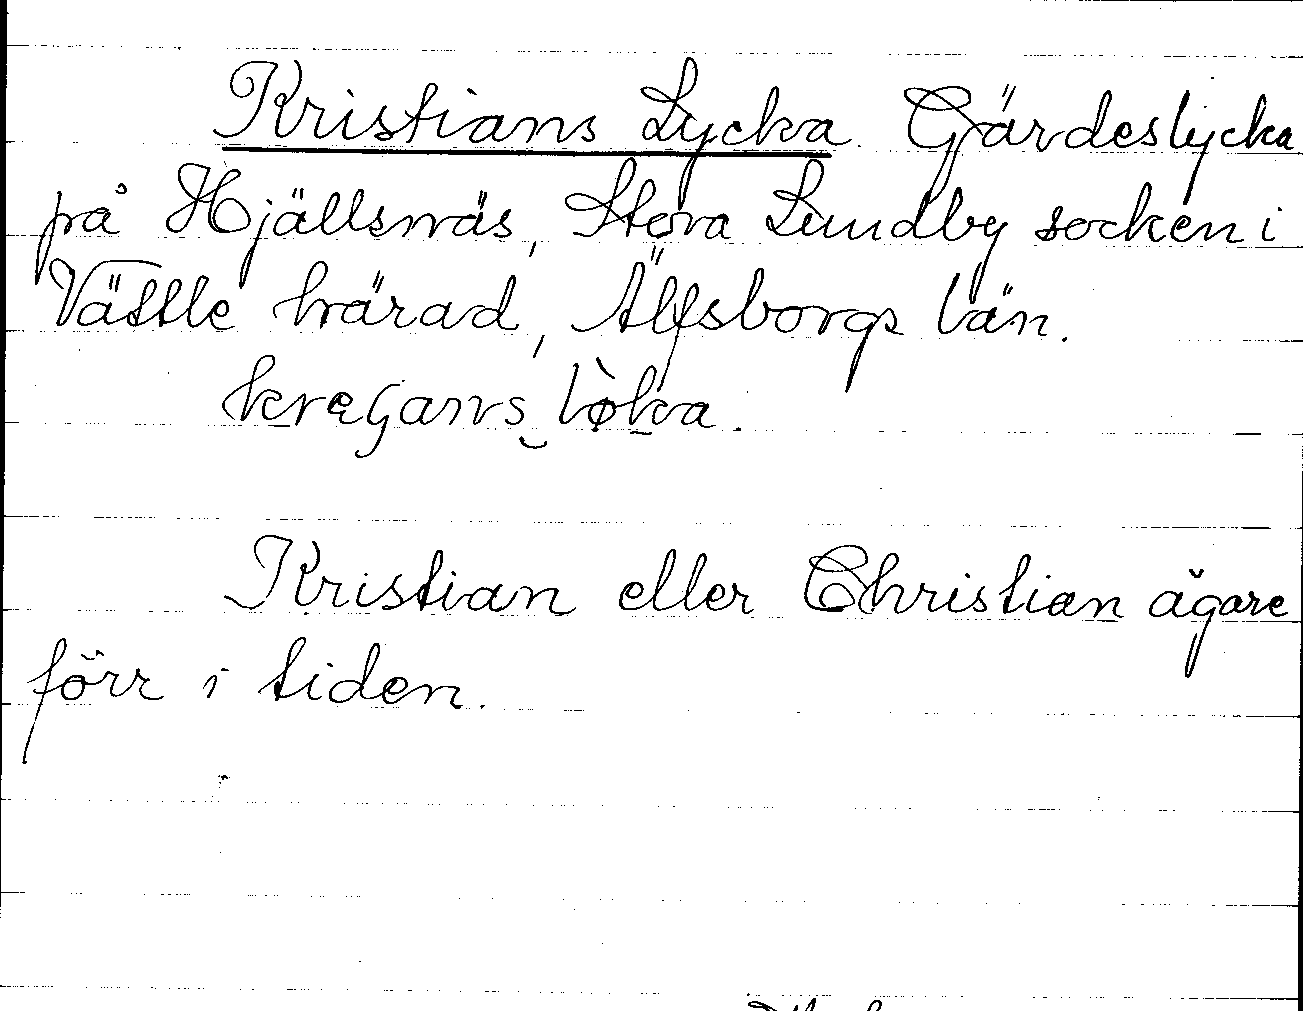 Kristians Lycka. Gärdeslycka
på Hjällsnäs, Stora Lundby socken i
Vättle härad, Älfsborgs län.
Kristian eller Christian ägare
förr i tiden.